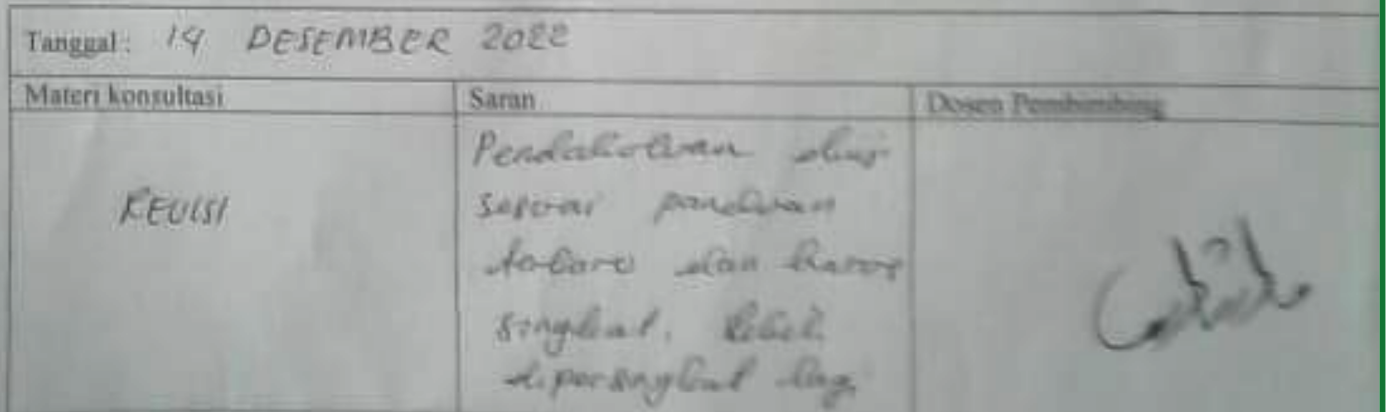 Tanggal: 14 DESEMBER 2022
Materi konsultasi Saran Dosen Pembimbing
REVISI
Pendahuluan
sesuai panduan
dan harus
singkat. Lebih
dipersingkat lagi